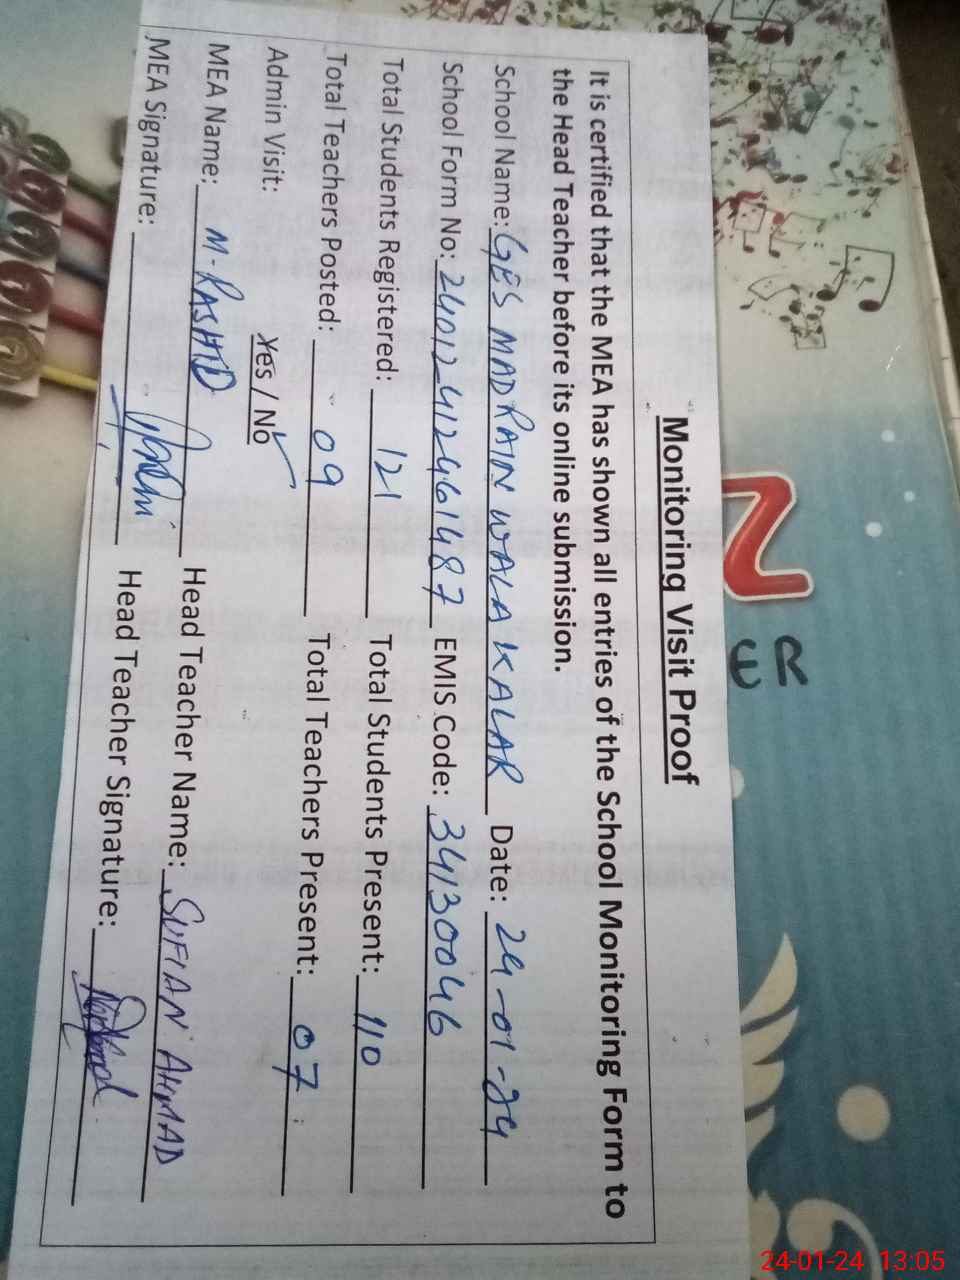 Monitoring Visit Proof
It is certified that the MEA has shown all entries of the School Monitoring Form to
the Head Teacher before its online submission.
School Name: GES MADRAIN WALA KALAR Date: 24-01-24
School Form No: 24012412461487 EMIS Code: 34130046
Total Students Registered: 121 Total Students Present: 110
Total Teachers Posted: 09 Total Teachers Present: 07
Admin Visit: Yes / No ✓
MEA Name: M. RASHID Head Teacher Name: SUFIAN AHMAD
MEA Signature: Head Teacher Signature:
N
24-01-24 13:05